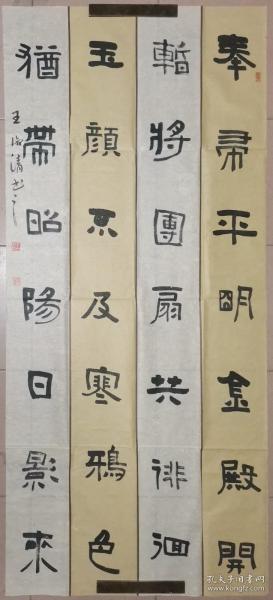 奉帚平明金殿開
暫將團扇共徘徊
玉顏不及寒鴉色
猶帶昭陽日影來
孔夫子旧书网